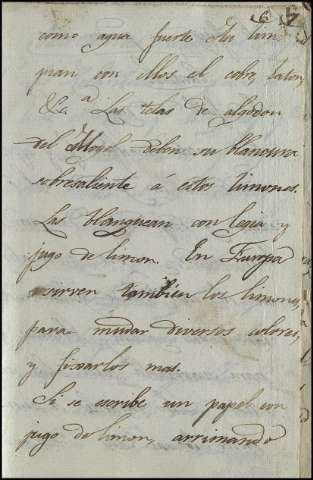 67
como agua fuerte i los lim
pian con ellos el cobre, laton,
&c.ª Las telas de algodon
del Mogol deben su blancura
sobresaliente á estos limones.
Las blanquean con legia y
jugo de limon. En Europa
sirven tambien los limones,
para mudar diversos colores,
y fixarlos mas.
Si se escribe un papel con
jugo de limon, arrimando